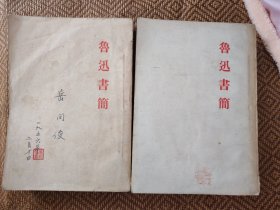 魯迅書簡
岳问俊
一九五六年
魯迅書簡